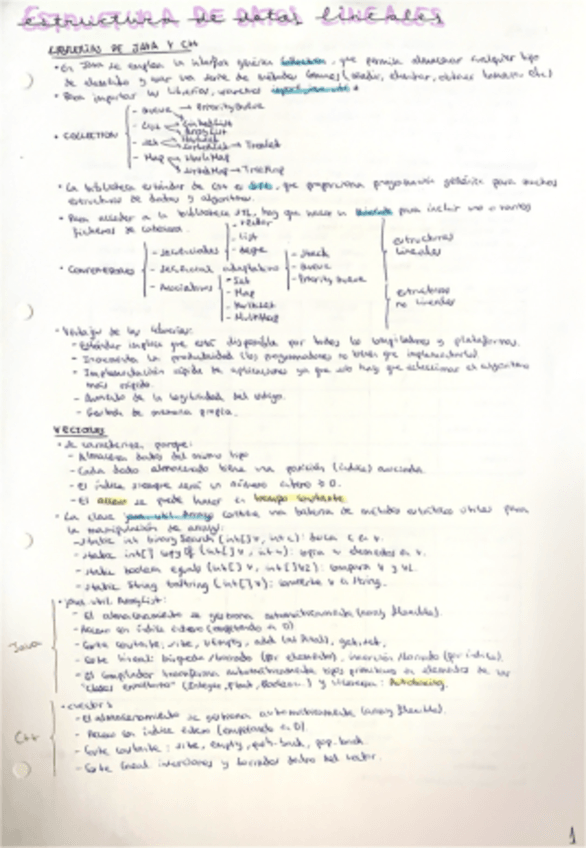 ESTRUCTURA DE DATOS LINEALES
estructura de datos lineales
LIBRERÍAS DE JAVA Y C++
• En Java se emplea la interfaz genérica Collection, que permite almacenar cualquier tipo
de elemento y usar una serie de métodos comunes (añadir, eliminar, obtener tamaño, etc)
• Para importar las librerías, usaremos
• COLLECTION
- Queue → PriorityQueue
- List
LinkedList
ArrayList
- Set
HashSet
SortedSet → TreeSet
- Map
HashMap
SortedMap → TreeMap
• La biblioteca estándar de C++ es que proporciona programación genérica para muchas
estructuras de datos y algoritmos.
• Para acceder a la biblioteca STL, hay que hacer un #include para incluir uno o varios
ficheros de cabecera.
• CONTENEDORES
- Secuenciales
- Vector
- List
- Deque
- Secuencial adaptativos
- Stack
- Queue
- Priority Queue
- Asociativos
- Set
- Map
- MultiSet
- MultiMap
estructuras
lineales
estructuras
no lineales
• Ventajas de las librerías:
- Estándar implica que está disponible por todos los compiladores y plataformas.
- Incrementa la productividad (los programadores no tienen que implementarlas).
- Implementación rápida de aplicaciones ya que solo hay que seleccionar el algoritmo
más rápido.
- Aumento de la legibilidad del código.
- Gestión de memoria propia.
VECTORES
• Se caracterizan porque:
- Almacena datos del mismo tipo
- Cada dato almacenado tiene una posición (índice) asociada.
- El índice siempre será un número entero ≥ 0.
- El acceso se puede hacer en tiempo constante
• La clase java.util.Arrays contiene una batería de métodos estáticos útiles para
la manipulación de arrays:
- static int binarySearch (int[] v, int c): busca c en v.
- static int[] copyOf (int[] v, int n): copia n elementos de v.
- static boolean equals (int[] v, int[] v2): compara v y v2.
- static String toString (int[] v): convierte v a String.
Java
• java.util.ArrayList:
- El almacenamiento se gestiona automáticamente (array flexible).
- Acceso con índice entero (empezando en 0)
- Coste constante: size, isEmpty, add (al final), get, set.
- Coste lineal: búsqueda/borrado (por elemento), inserción/borrado (por índice).
- El compilador transforma automáticamente tipos primitivos en elementos de las
"clases envoltorio" (Integer, Float, Boolean...) y viceversa: Autoboxing.
C++
• <vector>
- El almacenamiento se gestiona automáticamente (array flexible).
- Acceso con índice entero (empezando en 0).
- Coste constante: size, empty, push_back, pop_back.
- Coste lineal: inserciones y borrados dentro del vector.
1